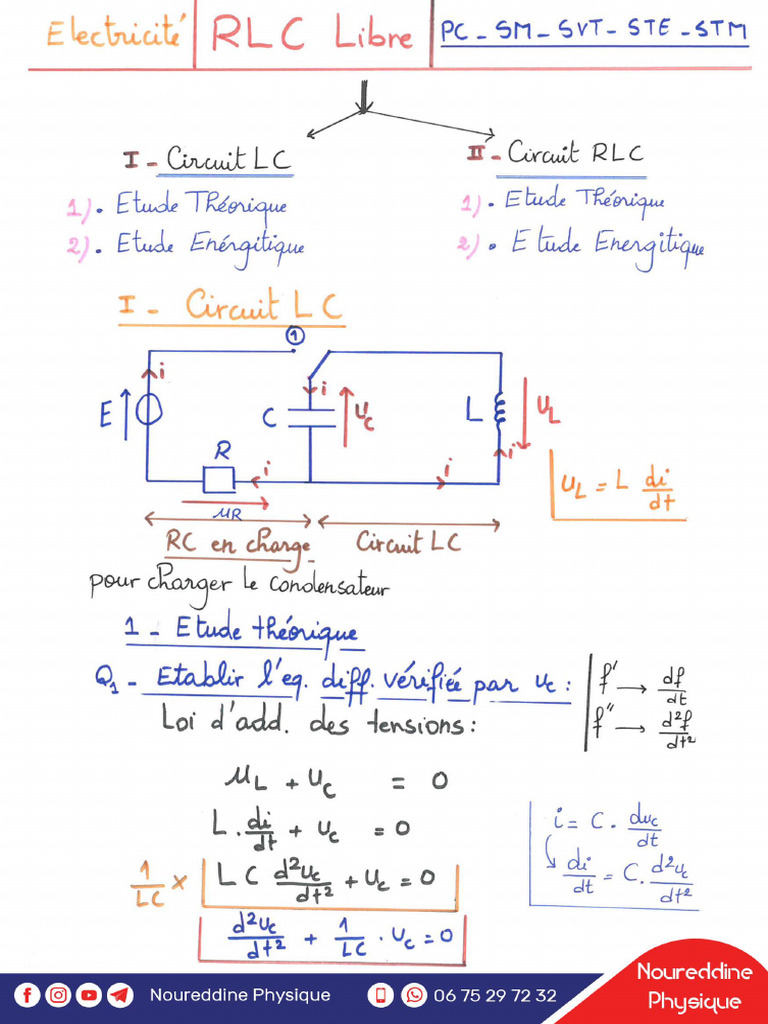 Electricité | RLC Libre | PC - SM - SVT - STE - STM
I - Circuit LC
1). Etude Théorique
2). Etude Enérgitique
II - Circuit RLC
1). Etude Théorique
2). Etude Energitique
I - Circuit LC
1
i
E
R
uR
i
C
i
Uc
L
UL
i
i
UL = L di/dt
RC en charge
Circuit LC
pour charger le condensateur
1 - Etude théorique
Q1 - Etablir l'eq. diff. vérifiée par uc :
f' → df/dt
f'' → d²f/dt²
Loi d'add. des tensions :
uL + Uc = 0
L . di/dt + Uc = 0
i = C . duc/dt
di/dt = C . d²uc/dt²
1/LC × LC d²uc/dt² + Uc = 0
d²uc/dt² + 1/LC . Uc = 0
Noureddine Physique
06 75 29 72 32
Noureddine
Physique